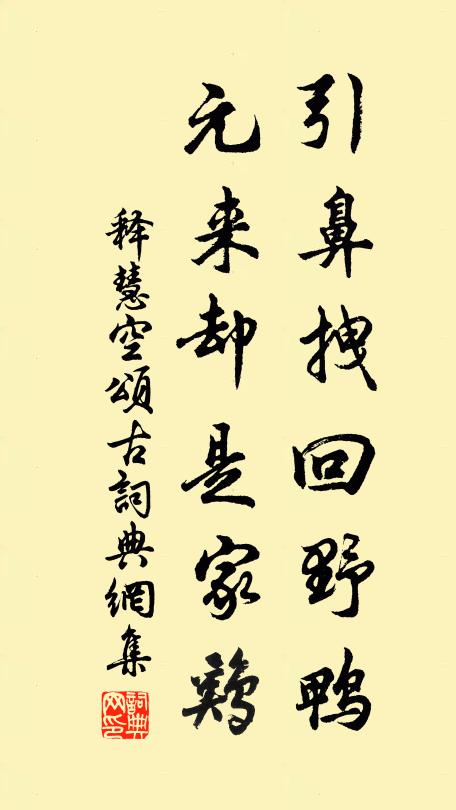 引鼻拽回野鸭
元来却是家鸡
释慧空颂古词典網集
詞典网印